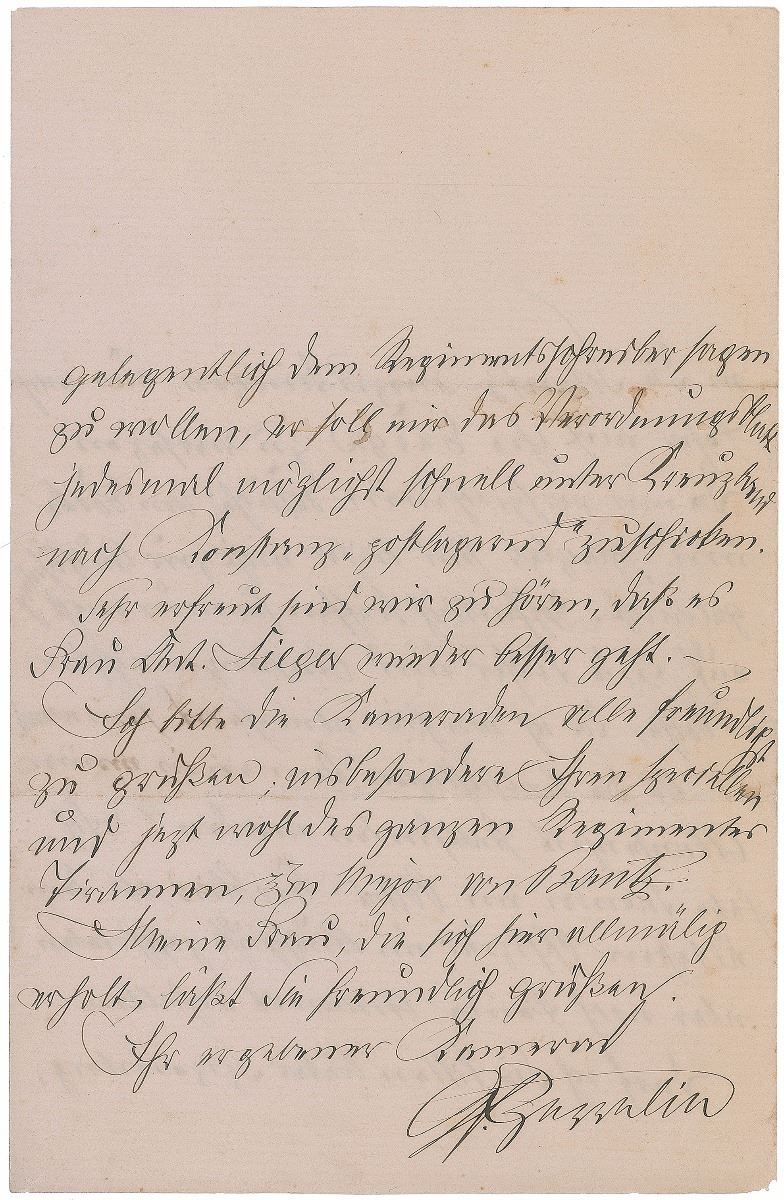 gelegentlich dem Regimentsschreiber sagen
zu wollen, er soll mir das Verordnungsblatt
jedesmal möglichst schnell unter Kreuzband
nach Konstanz „postlagernd" zuschicken.
Sehr erfreut sind wir zu hören, daß es
Frau Ant. wieder besser geht. –
Ich bitte die Kameraden alle freundlichst
zu grüßen, insbesondere Ihren speciellen
und jezt wohl des ganzen Regimentes
Tirannen, Major von
Meine Frau, die sich hier allmälig
erholt, läßt Sie freundlich grüßen.
Ihr ergebener Kamerad
Gf. Zeppelin